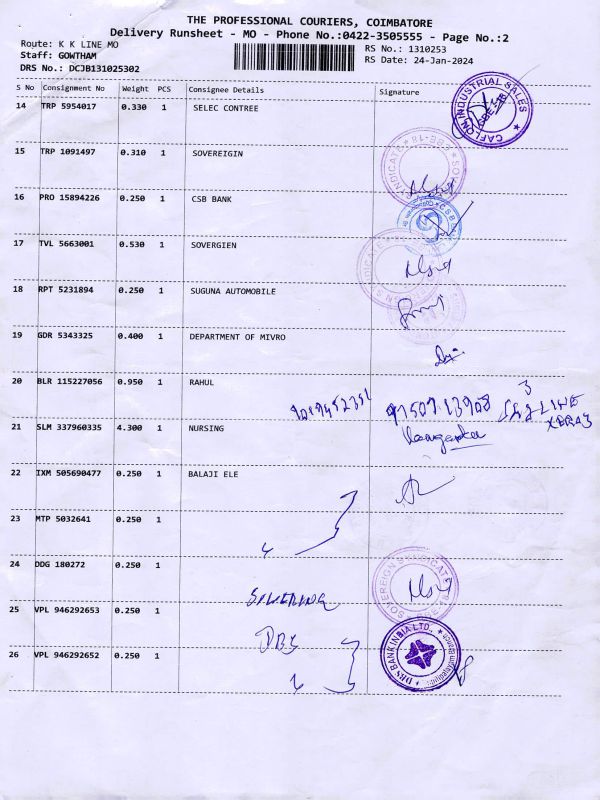 THE PROFESSIONAL COURIERS, COIMBATORE
Delivery Runsheet - MO - Phone No.:0422-3505555 - Page No.:2
Route: K K LINE MO
RS No.: 1310253
Staff: GOWTHAM
RS Date: 24-Jan-2024
DRS No.: DCJB131025302
S No Consignment No Weight PCS Consignee Details Signature
14 TRP 5954017 0.330 1 SELEC CONTREE
CAFLON INDUSTRIAL SALES
15 TRP 1091497 0.310 1 SOVEREIGIN
16 PRO 15894226 0.250 1 CSB BANK
CSB
17 TVL 5663001 0.530 1 SOVERGIEN
18 RPT 5231894 0.250 1 SUGUNA AUTOMOBILE
19 GDR 5343325 0.400 1 DEPARTMENT OF MIVRO
20 BLR 115227056 0.950 1 RAHUL
21 SLM 337960335 4.300 1 NURSING
22 IXM 505690477 0.250 1 BALAJI ELE
23 MTP 5032641 0.250 1
24 DDG 180272 0.250 1
SOVEREIGN SYNDICATE
25 VPL 946292653 0.250 1
DBS
DBS BANK INDIA LTD.
26 VPL 946292652 0.250 1